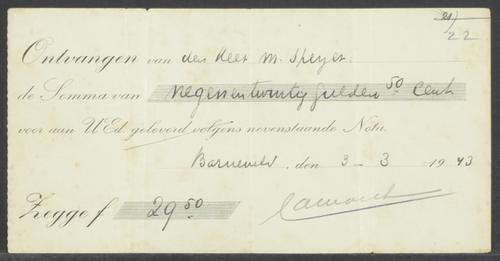 21)
22
Ontvangen van den Heer M. Speyer.
de Somma van negenentwintig gulden 50 Cent
voor aan UEd. geleverd volgens nevenstaande Nota.
Barneveld, den 3 - 3 1943
Zegge f 29 50